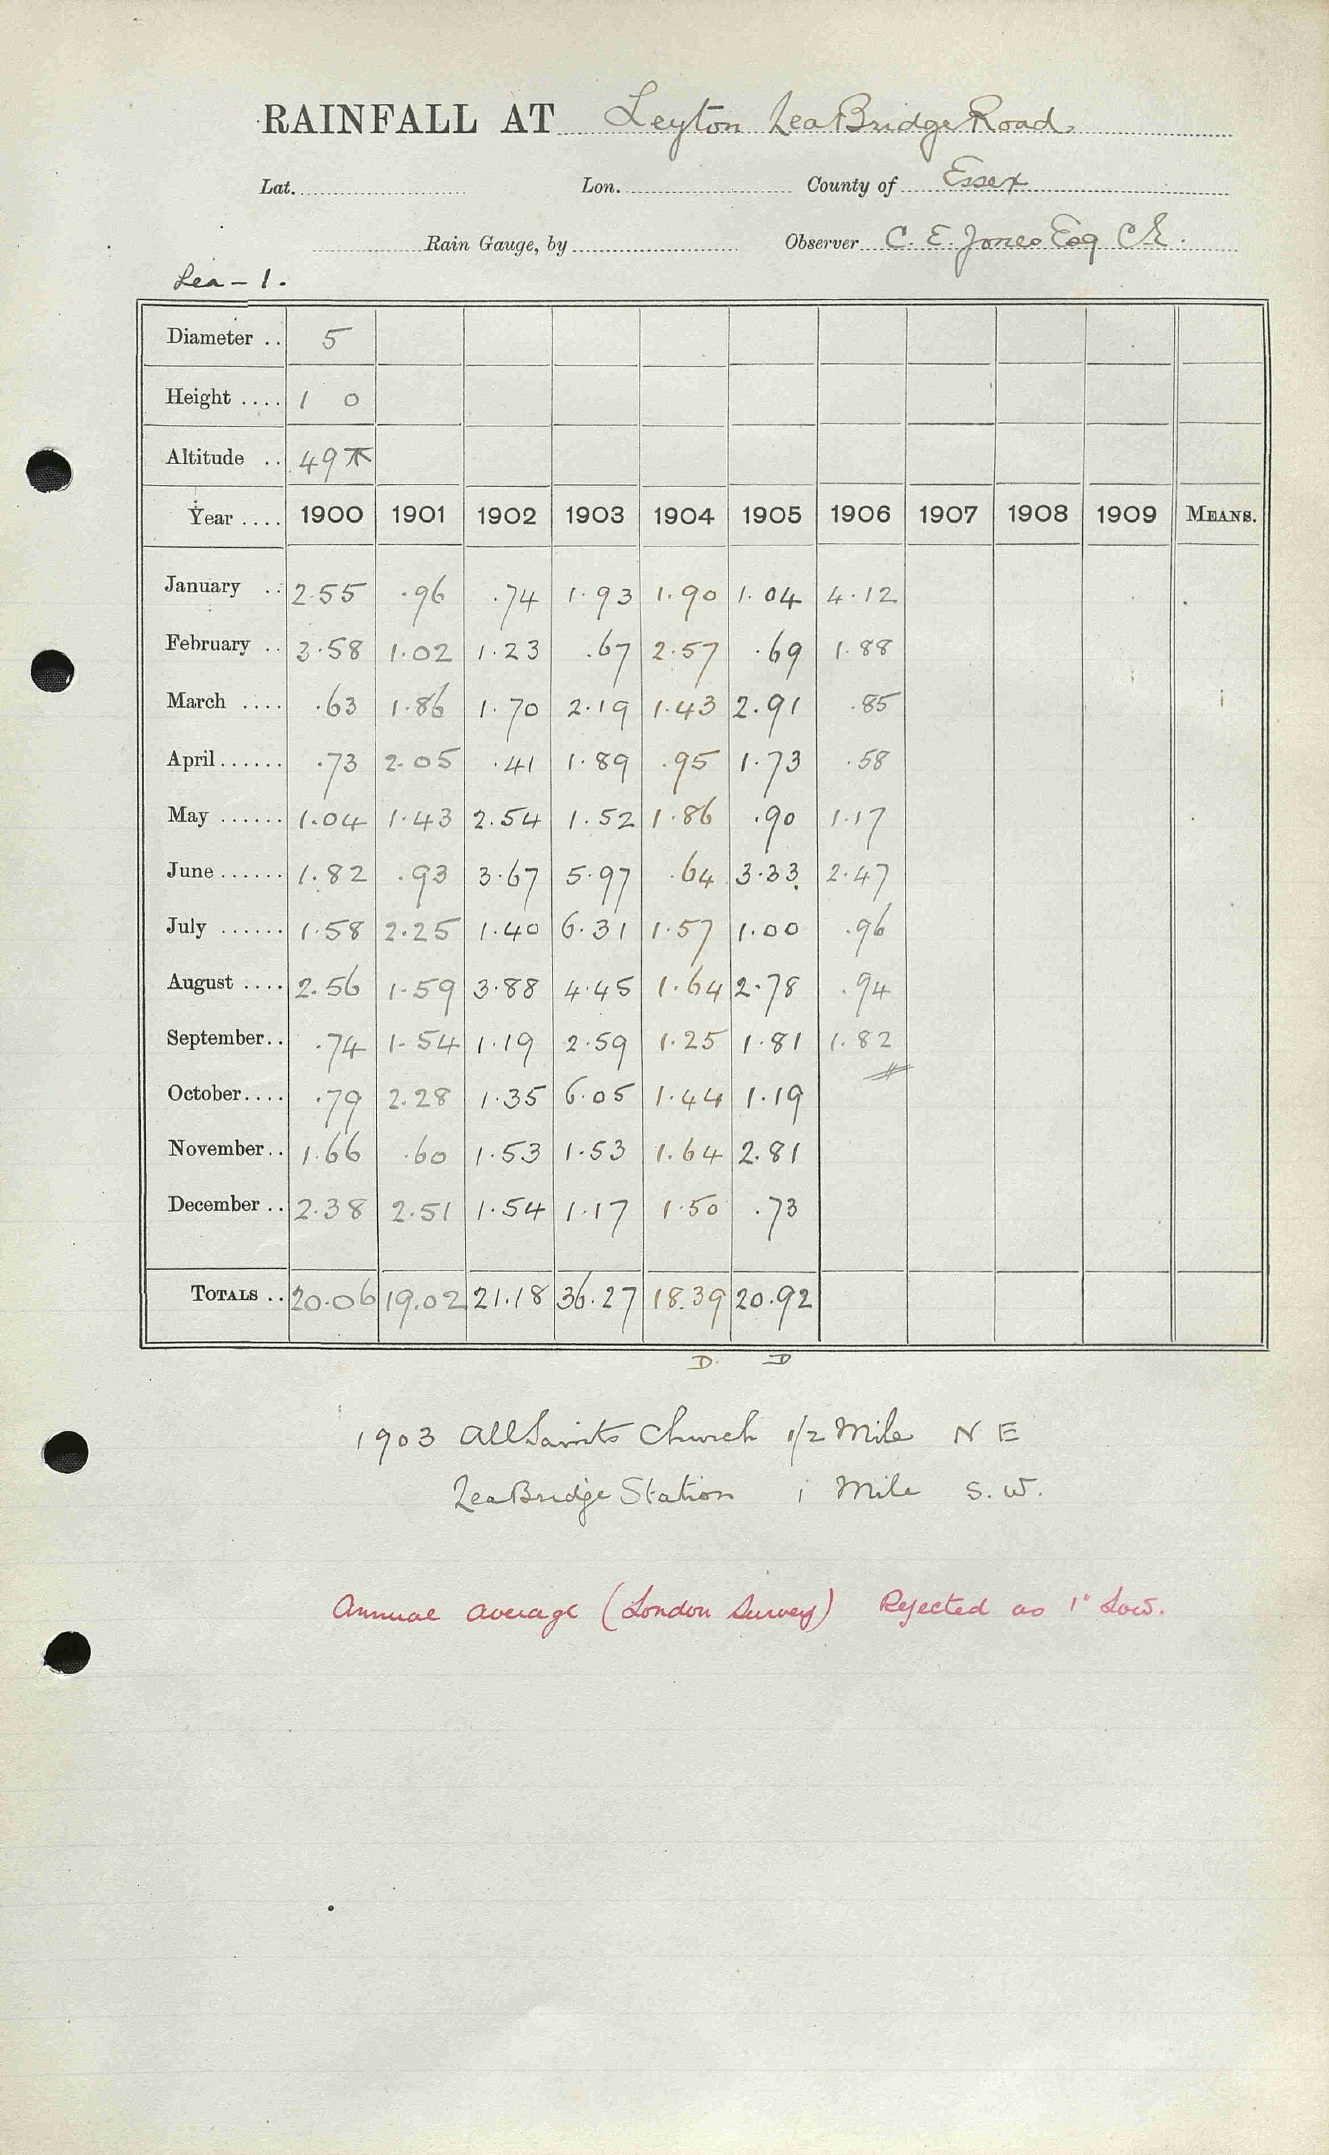 RAINFALL AT Leyton Lea Bridge Road.
Lat. Lon. County of Essex
Rain Gauge, by Observer C. E. Jones Esq CE.
Lea - 1.
Diameter .. 5
Height .... 1 0
Altitude .. 49
Year .... 1900 1901 1902 1903 1904 1905 1906 1907 1908 1909 MEANS.
January .. 2.55 .96 .74 1.93 1.90 1.04 4.12
February .. 3.58 1.02 1.23 .67 2.57 .69 1.88
March .... .63 1.86 1.70 2.19 1.43 2.91 .85
April ...... .73 2.05 .41 1.89 .95 1.73 .58
May ...... 1.04 1.43 2.54 1.52 1.86 .90 1.17
June ...... 1.82 .93 3.67 5.97 .64 3.33 2.47
July ...... 1.58 2.25 1.40 6.31 1.57 1.00 .96
August .... 2.56 1.59 3.88 4.45 1.64 2.78 .94
September.. .74 1.54 1.19 2.59 1.25 1.81 1.82
October.... .79 2.28 1.35 6.05 1.44 1.19
November.. 1.66 .60 1.53 1.53 1.64 2.81
December .. 2.38 2.51 1.54 1.17 1.50 .73
TOTALS .. 20.06 19.02 21.18 36.27 18.39 20.92
D. D
1903 All Saints Church 1/2 Mile N E
Lea Bridge Station 1 Mile S. W.
Annual average (London Survey) Rejected as 1" Low.